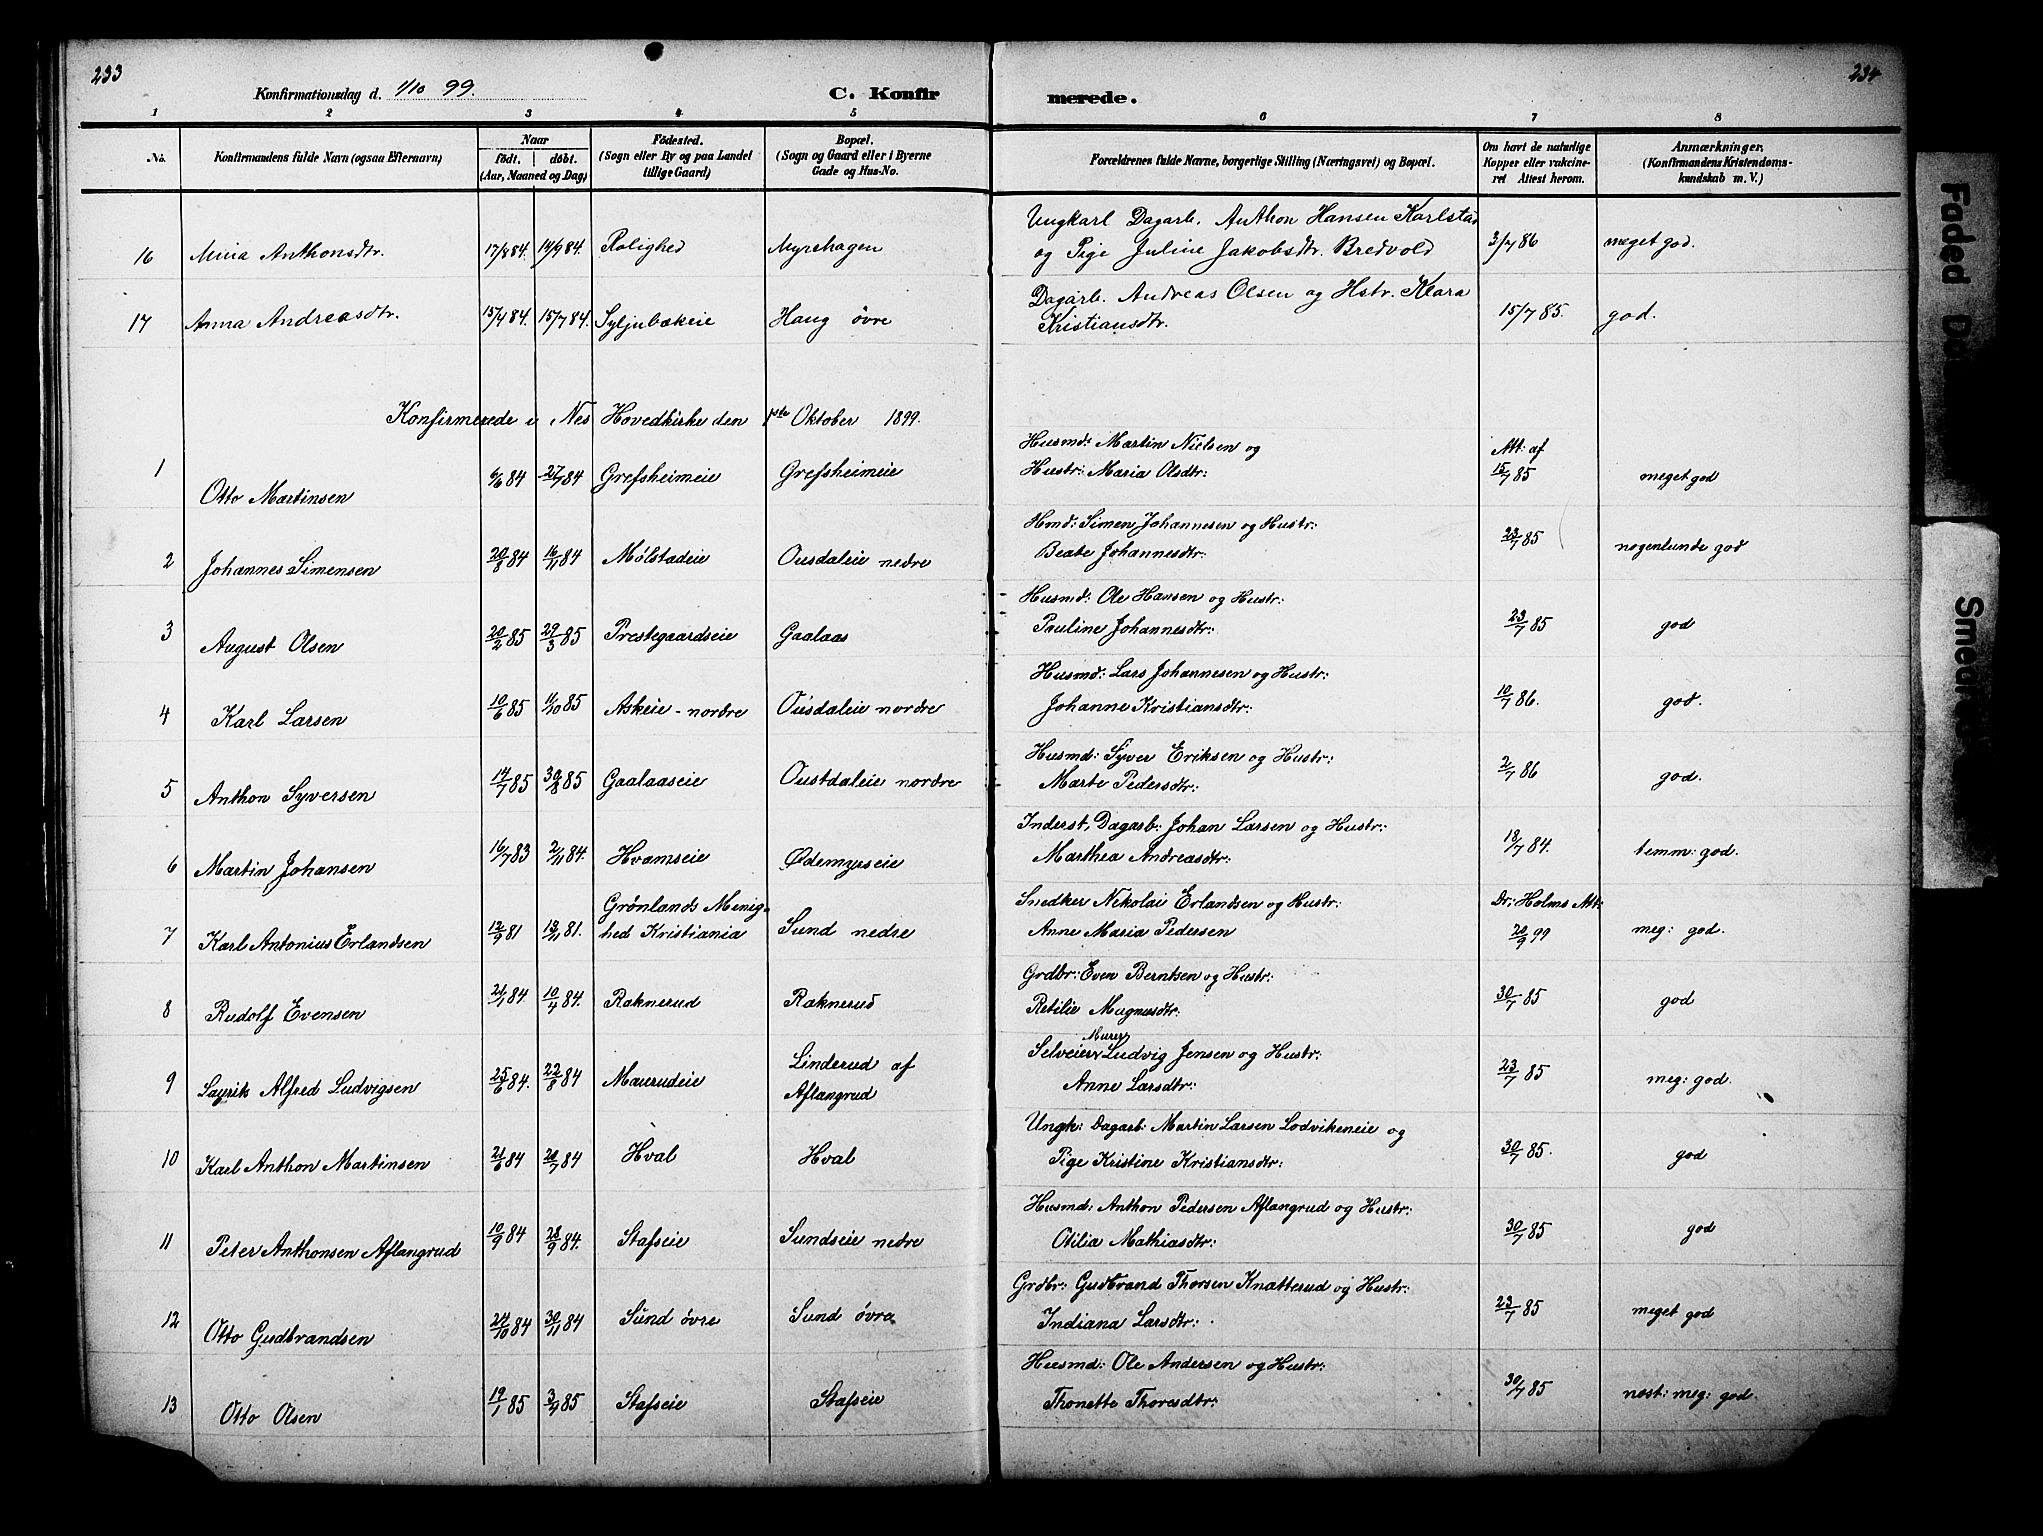 233
234
Konfirmationsdag d. 1/10 99.
C. Konfirmerede.
1 2 3 4 5 6 7 8
No. Konfirmandens fulde Navn (ogsaa Efternavn) Naar født. døbt. (Aar, Maaned og Dag) Fødested. (Sogn eller By og paa Landet tillige Gaard) Bopæl. (Sogn og Gaard eller i Byerne Gade og Hus-No. Forældrenes fulde Navne, borgerlige Stilling (Næringsvei) og Bopæl. Om havt de naturlige Kopper eller vaccineret Attest herom. Anmærkninger. (Konfirmandens Kristendomskundskab m. V.)
Ungkarl Dagarb. Anthon Hansen Karlstad
16 Mina Anthonsdtr. 17/8 84. 14/9 84. Rolighed Myrehagen og Pige Juline Jakobsdtr. Bredvold 3/7 86 meget god.
Dagarb. Andreas Olsen og Hstr. Klara
17 Anna Andreasdtr. 15/4 84. 15/7 84. Syljubækeie Haug øvre Kristiansdtr. 15/7 85. god.
Konfirmerede i Nes Hovedkirke den 1ste Oktober 1899.
Husmd: Martin Nielsen og Att: af
1 Otto Martinsen 6/6 84 27/7 84 Grefsheimeie Grefsheimeie Hustr: Maria Olsdtr: 15/7 85 meget god
Hmd: Simen Johannesen og Hustr:
2 Johannes Simensen 20/8 84 16/11 84 Mølstadeie Ousdaleie nedre Beate Johannesdtr: 23/7 85 nogenlunde god
Husmd: Ole Hansen og Hustr:
3 August Olsen 20/2 85 29/3 85 Prestegaardseie Gaalaas Pauline Johannesdtr: 23/7 85 god
Husmd: Lars Johannesen og Hustr:
4 Karl Larsen 10/6 85 11/10 85 Askeie - nordre Ousdaleie nordre Johanne Kristiansdtr: 10/7 86. god.
Husmd: Syver Eriksen og Hustr:
5 Anthon Syversen 14/7 85 30/8 85 Gaalaaseie Oustdaleie nordre Marte Pedersdtr: 2/7 86 god.
Inderst, Dagarb: Johan Larsen og Hustr:
6 Martin Johansen 16/7 83 2/11 84. Hvamseie Ødemyrseie Marthea Andreasdtr: 18/7 84. temm: god.
Grønlands Menig- Snedker Nikolai Erlandsen og Hustr: Dr: Holms Att:
7 Karl Antonius Erlandsen 12/9 81 13/11 81. hed Kristiania Sund nedre Anne Maria Pedersen 20/9 99 meg: god.
Grdbr: Even Berntsen og Hustr:
8 Rudolf Evensen 21/1 84 10/4 84. Raknerud Raknerud Retilie Magnusdtr: 30/7 85 god
Murer
Linderud af Selveier Ludvig Jensen og Hustr:
9 Laurik Alfred Ludvigsen 25/6 84. 22/8 84 Maurudeie Aflangrud Anne Larsdtr: 23/7 85 meg: god.
Ungk: Dagarb: Martin Larsen Lodvikeneie og
10 Karl Anthon Martinsen 21/6 84 20/7 84 Hval Hval Pige Kristine Kristiansdtr: 30/7 85. god
Husmd: Anthon Pedersen Aflangrud og Hustr:
11 Peter Anthonsen Aflangrud 10/9 84 28/9 84. Stafseie Sundseie nedre Otilia Mathiasdtr: 30/7 85 god
Grdbr: Gudbrand Thorsen Knatterud og Hustr:
12 Otto Gudbrandsen 24/10 84 30/11 84 Sund øvre Sund øvre Indiana Larsdtr: 23/7 85 meget god
Husmd: Ole Andersen og Hustr:
13 Otto Olsen 19/1 85 3/4 85 Stafseie Stafseie Thonette Thoresdtr: 30/7 85 næst: meg: god.
Faded
Smea